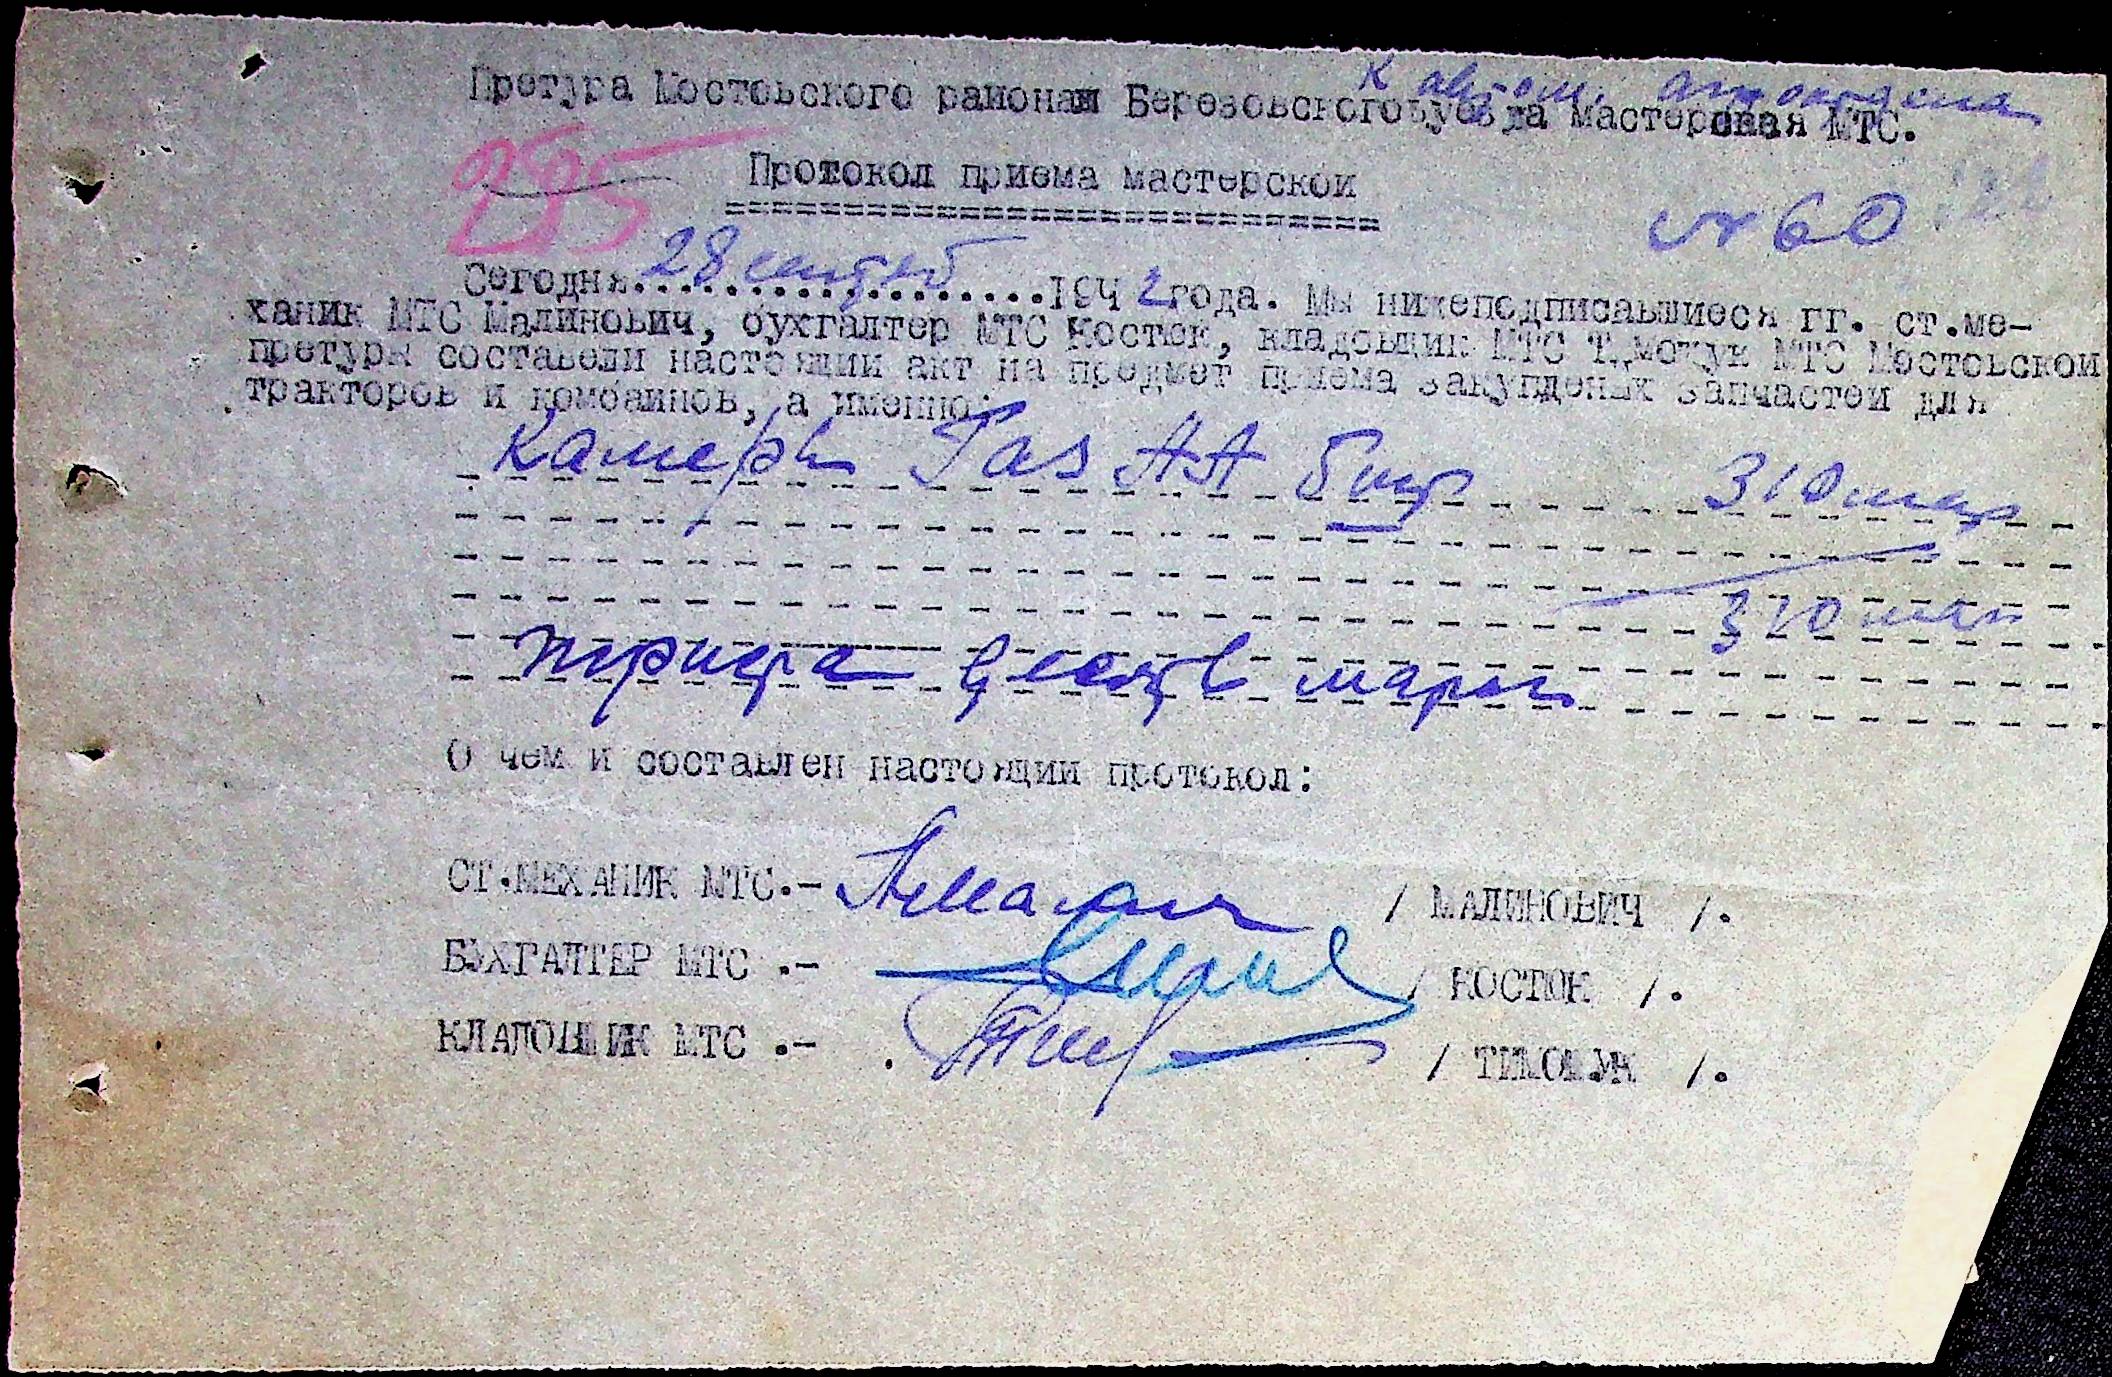 Претура Мостовского района Березовского уезда Мастерская МТС.
285
Протокол приема мастерской
№ 60
Сегодня 28 сентяб 1942 года. Мы нижеподписавшиеся гг. ст.ме-
ханик МТС Малинович, бухгалтер МТС Косток, кладовщик МТС Тимощук МТС Мостовской
претуры составели настоящий акт на предмет приема закупленых запчастей для
тракторов и комбаинов, а именно:
Камеры Газ АА 5 шт 310 мар
310 мар
Триста десять марок
О чем и составлен настоящии протокол:
СТ.МЕХАНИК МТС.- / МАЛИНОВИЧ /.
БУХГАЛТЕР МТС .- / КОСТЮК /.
КЛАДОВЩИК МТС .- / ТИМОЩУК /.